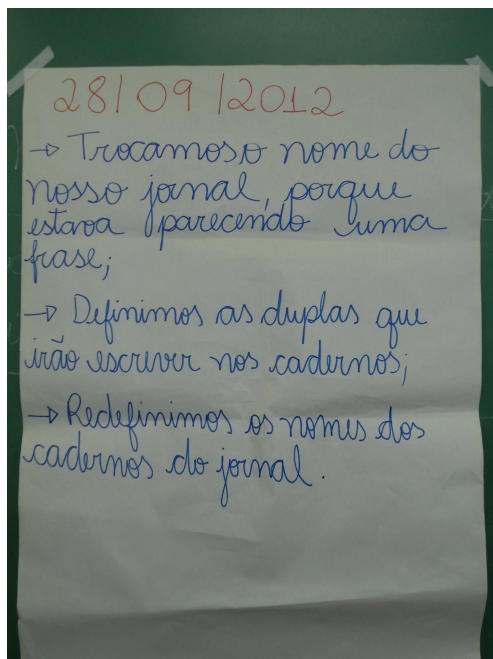 28/09/2012
→ Trocamos o nome do
nosso jornal, porque
estava parecendo uma
frase;
→ Definimos as duplas que
irão escrever nos cadernos;
→ Redefinimos os nomes dos
cadernos do jornal.